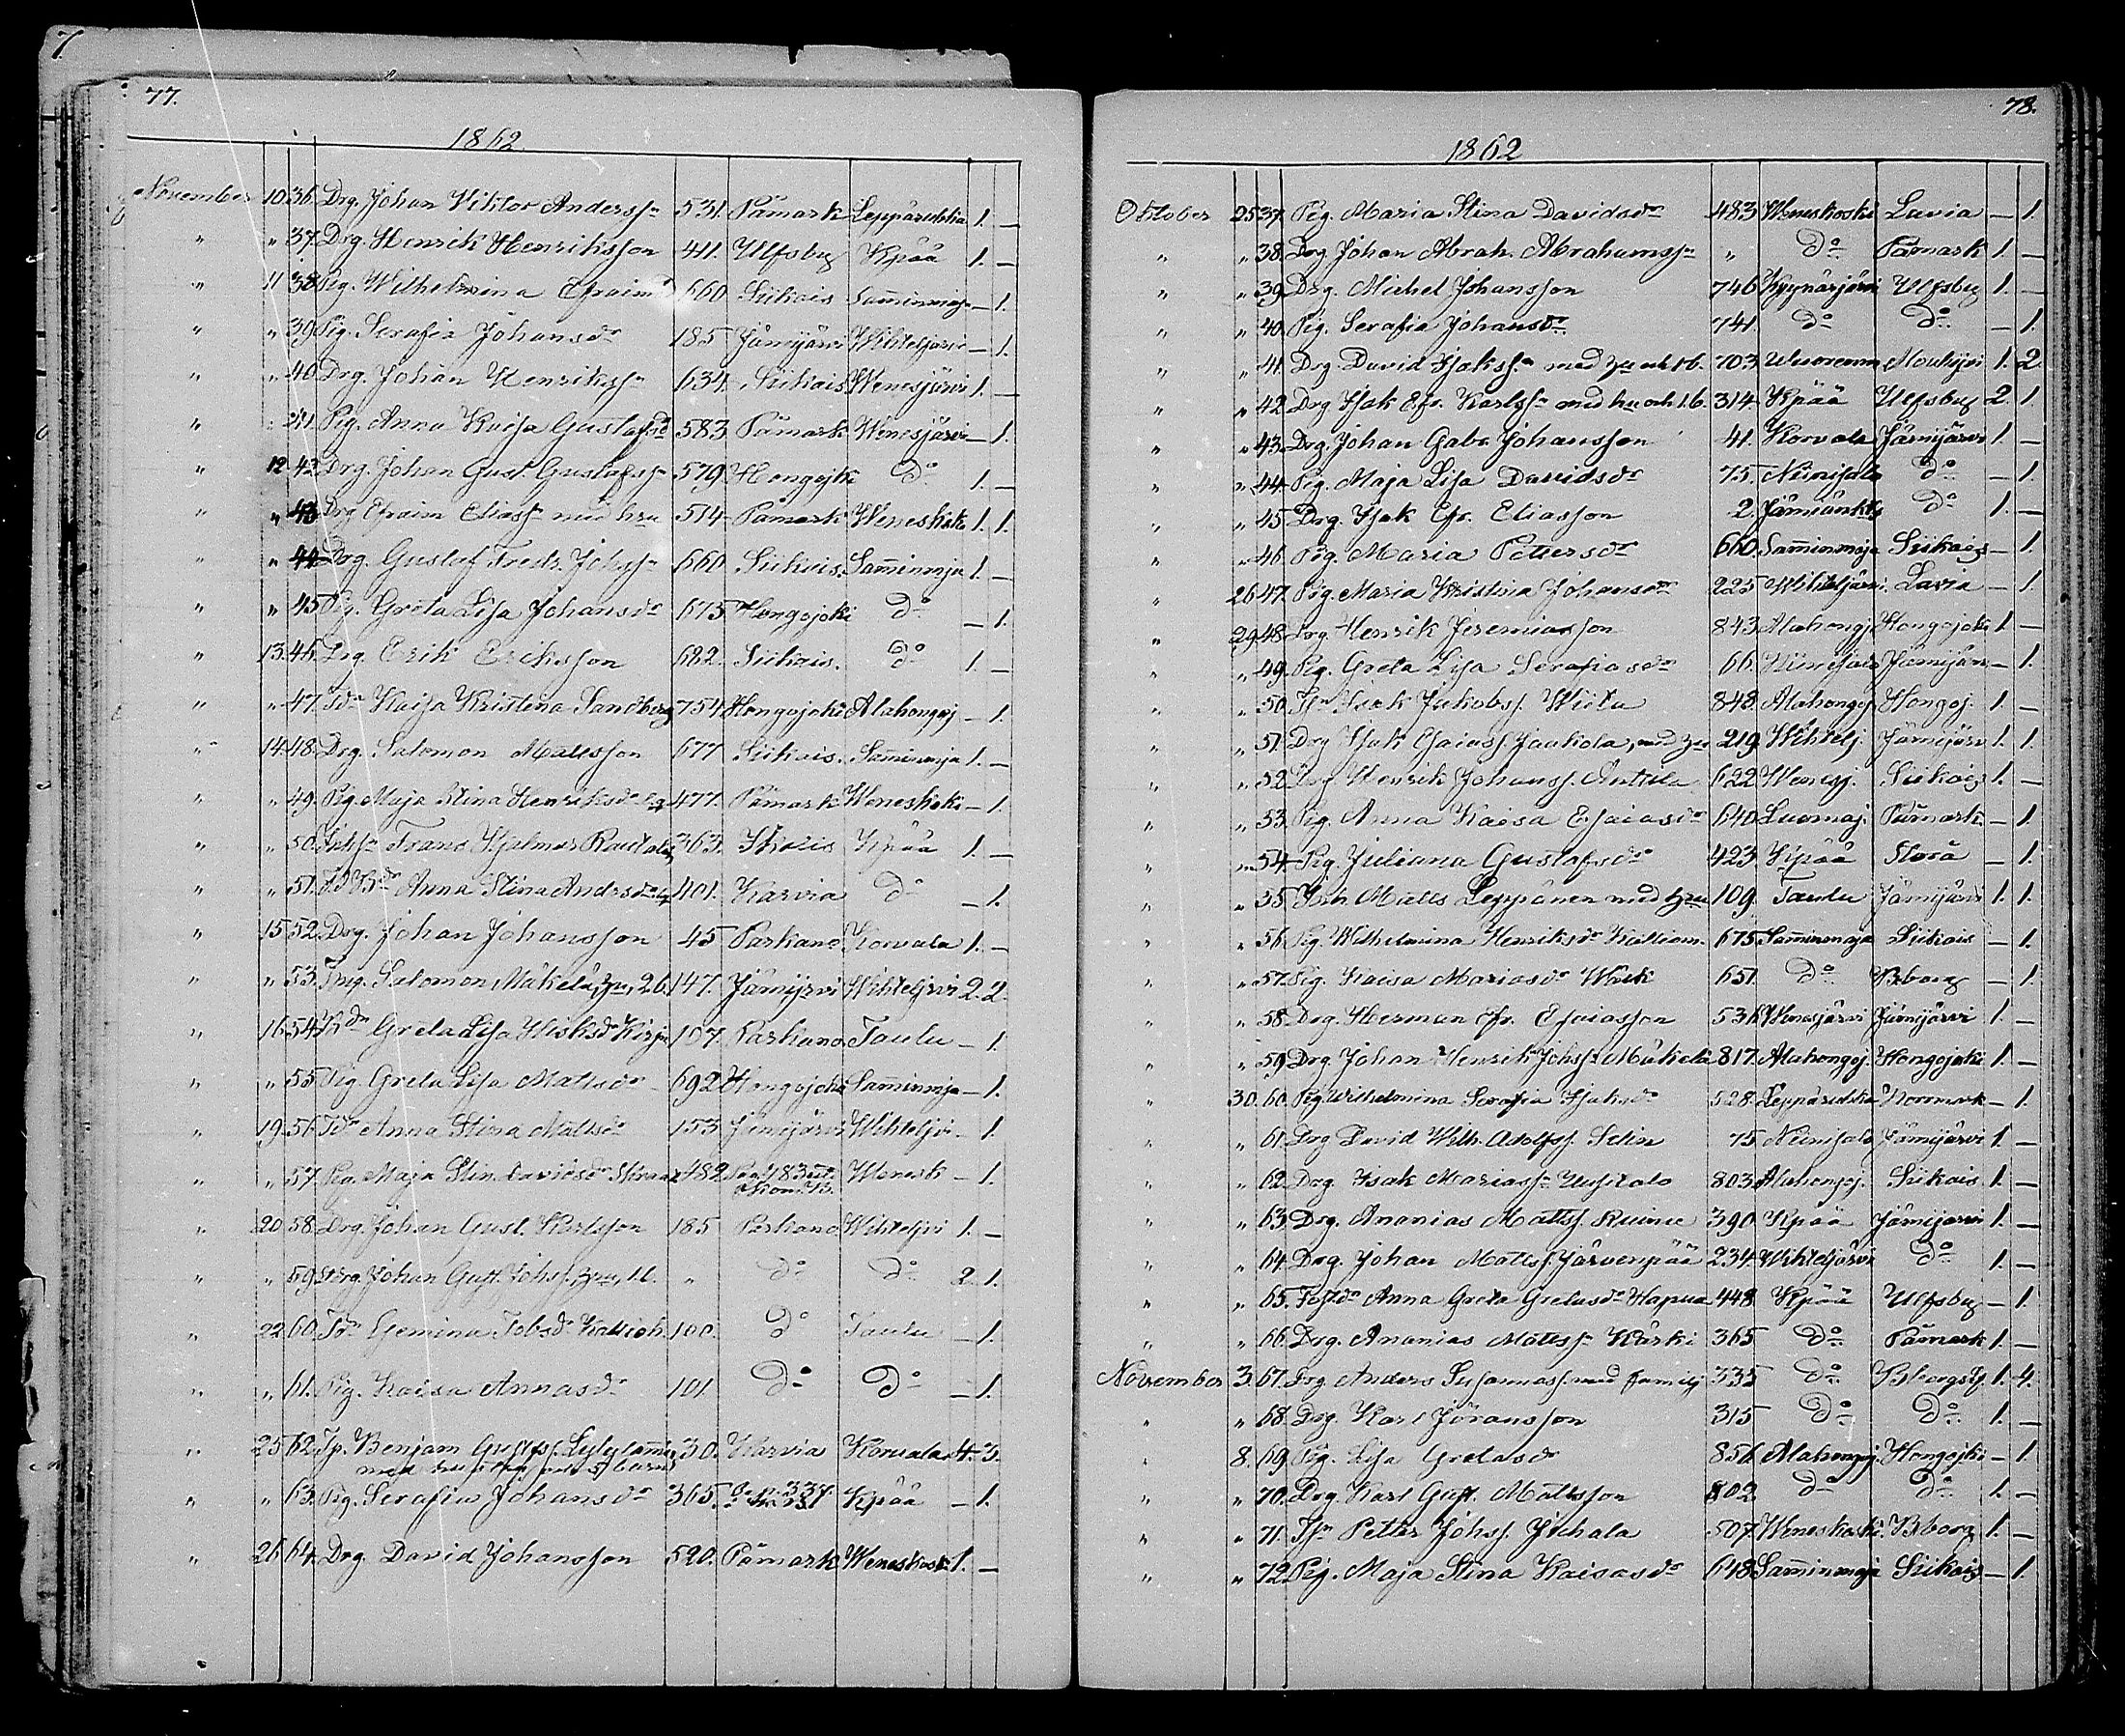 7.
77.
1862
November 10. 36. Drg. Johan Viktor Anderss:n 531. Påmark Leppäruhka 1. —
" " 37. Drg. Henrik Henriksson 441. Ulfsby Kpää 1. —
" 11 38 Pig. Wilhelmina Efraimsd 660 Siikais Samminmaja — 1.
" " 39 Pig. Serafia Johansdr 185 Jämijärvi Wihteljärvi — 1.
" " 40 Drg. Johan Henrikss:n 634. Siikais Wenesjärvi 1. —
" " 41. Pig. Anna Kaisa Gustafsd 583 Påmark Wenesjärvi — 1.
" 12 42 Drg. Johan Gust. Gustafss:n 579 Hongojki do 1. —
" " 43 Drg Efraim Eliass:n med hru 514 Påmark Weneskoki 1. 1.
" " 44 Drg. Gustaf Fredr. Johss:n 660 Siikais. Samminmja 1. —
" " 45 Pig. Greta Lisa Johansdr 675 Hongojoki do — 1.
" 13. 46. Drg. Erik Eriksson 682. Siikais. do 1. —
" " 47. Idr Kaisa Kristina Sandberg 754 Hongojoki Alahongoj — 1.
" 14. 48. Drg. Salomon Mattsson 677 Siikais. Samminmja 1. —
" " 49. Pig. Maja Stina Henriksdr 477. Påmark Weneskoki — 1.
" " 50. Frans Hjalmar 363. Ikalis Kpää 1. —
" " 51. Anna Stina Andersdr 401. Karvia do — 1.
" 15 52. Drg. Johan Johansson 45 Parkano Korvala 1. —
" " 53. Salomon Mäkelä, hru, 2 b. 147. Jämijrvi Wihteljrvi 2. 2.
" 16 54 Greta Lisa 107. Parkano Taulu — 1.
" " 55 Pig. Greta Lisa Mattsdr 692 Hongojoki Samminmja — 1.
" 19. 56. Idr Anna Stina Mattsdr 153 Jämijärvi Wihteljrvi — 1.
" " 57. Pig. Maja Stin. Davidsdr 482 Wenesk — 1.
" 20 58. Drg. Johan Gust. Karlsson 185 Parkano Wihteljrvi 1. —
" " 59. Johan Gust. Johss., hru, 1 b. " do do 2. 1.
" 22 60. Idr Gemina Jobsdr 100. do Taulu — 1.
" " 61. Pig. Kaisa Annasdr 101. do do — 1.
" 25 62. Benjam Gustfs. Lylylammi 30. Karvia Korvala 4. 3.
med hustru och 5 barn
" " 63. Pig. Serafia Johansdr 365. Kpää — 1.
" 26 64. Drg. David Johansson 520. Påmark Weneskoski 1. —
78.
1862
Oktober 25 37. Pig. Maria Stina Davidsdr 483 Weneskoski Lavia — 1.
" " 38. Drg Johan Abrah. Abrahamss:n " do Påmark 1. —
" " 39. Drg. Michel Johansson 746 Kyynärjärvi Ulfsby 1. —
" " 40. Pig. Serafia Johansdr 741. do do — 1.
" " 41. Drg David Isakss:n med hru och 1 b. 703. Mouhijrvi 1. 2.
" " 42 Drg Isak Efr. Karlss:n med hru och 1 b. 314. Kpää Ulfsby 2. 1.
" " 43. Drg. Johan Gabr Johansson 41. Korvala Jämijärvi 1. —
" " 44. Pig. Maja Lisa Davidsdr 75. Niinisalo do — 1.
" " 45 Drg. Isak Efr. Eliasson 2. do 1. —
" " 46 Pig. Maria Pettersdr 660. Samminmaja Siikais — 1.
" 26 47. Pig. Maria Kristina Johansdr 225 Wihteljärvi. Lavia — 1.
" 29. 48. Drg. Henrik Jeremiasson 843 Alahongj. Hongojoki 1. —
" " 49. Pig. Greta Lisa Serafiasdr 66. Niinisalo Jämijärvi — 1.
" " 50. Isak Jakobs. Wiita 848 Alahongoj Hongoj. 1. —
" " 51. Drg Isak Esaiass. Jaakola, med hru 219. Wihtelj. Jämijärv 1. 1.
" " 52. Drg Henrik Johanss. Anttila 622 Wenesj. Siikais 1. —
" " 53. Pig. Anna Kaisa Esaiasdr 640 Luomaj. Påmark. — 1.
" " 54 Pig. Juliana Gustafsdr 423 Kpää Storå — 1.
" " 55 Matts Leppänen med hru 109. Taulu Jämijärvi 1. 1.
" " 56. Pig. Wilhelmina Henriksdr 675 Samminmaja Siikais — 1.
" " 57. Pig. Kaisa Mariasdr 651. do Bborg — 1.
" " 58. Drg. Herman Efr. Esaiasson 531 Wenesjärvi Jämijärvi 1. —
" " 59. Drg Johan Henrik Johss:n Mäkelä 817. Alahongoj. Hongojoki 1. —
" 30. 60. Pig Wilhelmina Serafia Isaksdr 528. Leppäruhka Norrmark — 1.
" " 61. Drg David Wilh. Adolfss. Selin 75 Niinisalo Jämijärvi 1. —
" " 62 Drg. Isak Mariass:n Uusitalo 803 Alahongoj. Siikais 1. —
" " 63 Drg. Ananias Matts. 390 Kpää Jämijärvi 1. —
" " 64 Drg. Johan Matts. Järvenpää 234. Wihteljärvi do 1. —
" " 65. Anna Greta Gretasdr Hapua 448 Kpää Ulfsby — 1.
" " 66. Drg. Ananias Mattss:n Kärki 365 do Påmark 1. —
November 3. 67. Drg Anders Susannas. med familj 335 do 1. 4.
" " 68. Drg. Karl Jöransson 315 do do 1. —
" 8. 69 Pig. Lisa Gretasdr 856. Alahongoj. Hongojki — 1.
" " 70. Drg. Karl Gust. Mattsson 802. do do 1. —
" " 71. Petter Johss. 507. Weneskoski. Bborg 1. —
" " 72. Pig. Maja Stina Kaisasdr 648 Samminmaja Siikais — 1.